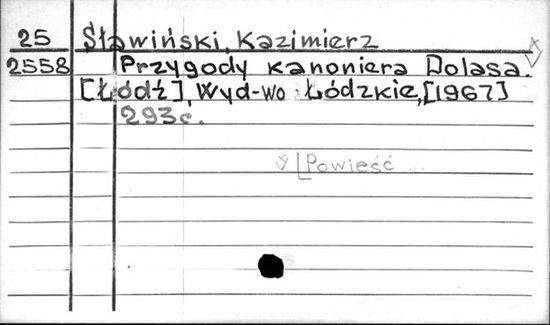 25 Sławiński, Kazimierz
2558 Przygody kanoniera Dolasa.
[Łódź], Wyd-wo Łódzkie, [1967]
293 c.
[Powieść